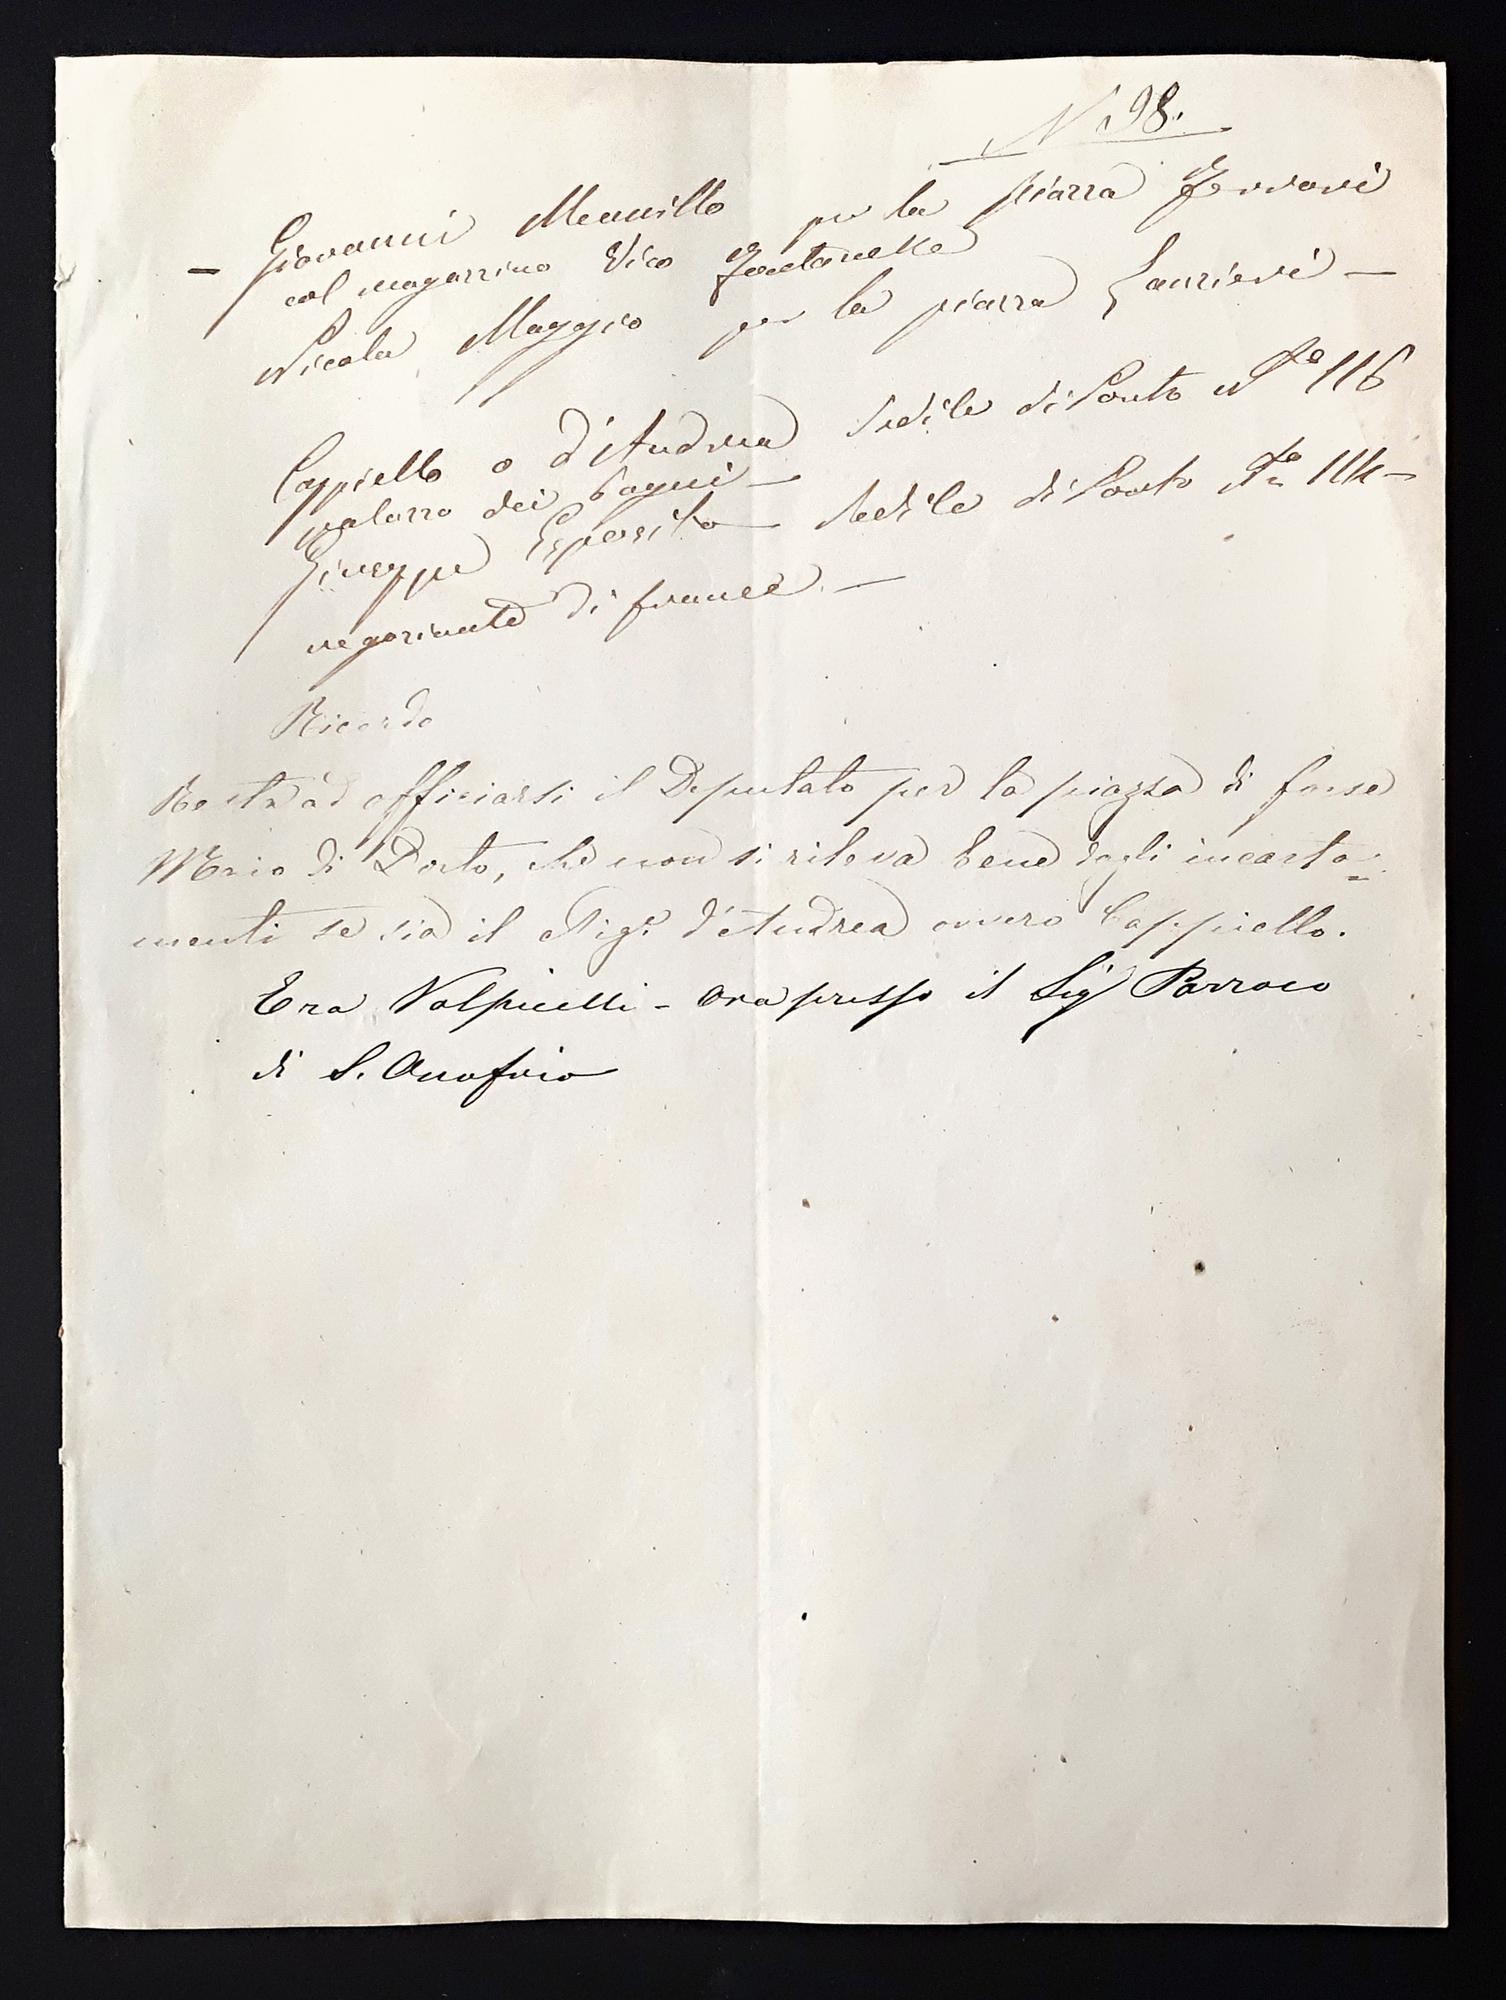 N 98.
– Giovanni Mennillo per la piazza Ferrari
col magazzino Vico Fontanelle
Nicola Maggio per la piazza Lanzieri –
Cappiello o d'Andrea Sedile di Porto N.º 116
palazzo dei Bagni –
Giuseppe Esposito – Sedile di Porto N.º 114 –
negoziante di france –
Ricordo
Resta ad officiarsi il Deputato per la piazza di forse
Maio di Porto, che non si rileva bene dagli incarta=
menti se sia il Sigr d'Andrea ovvero Cappiello.
Era Volpicelli – ora presso il Sigr Parroco
di S. Onofrio